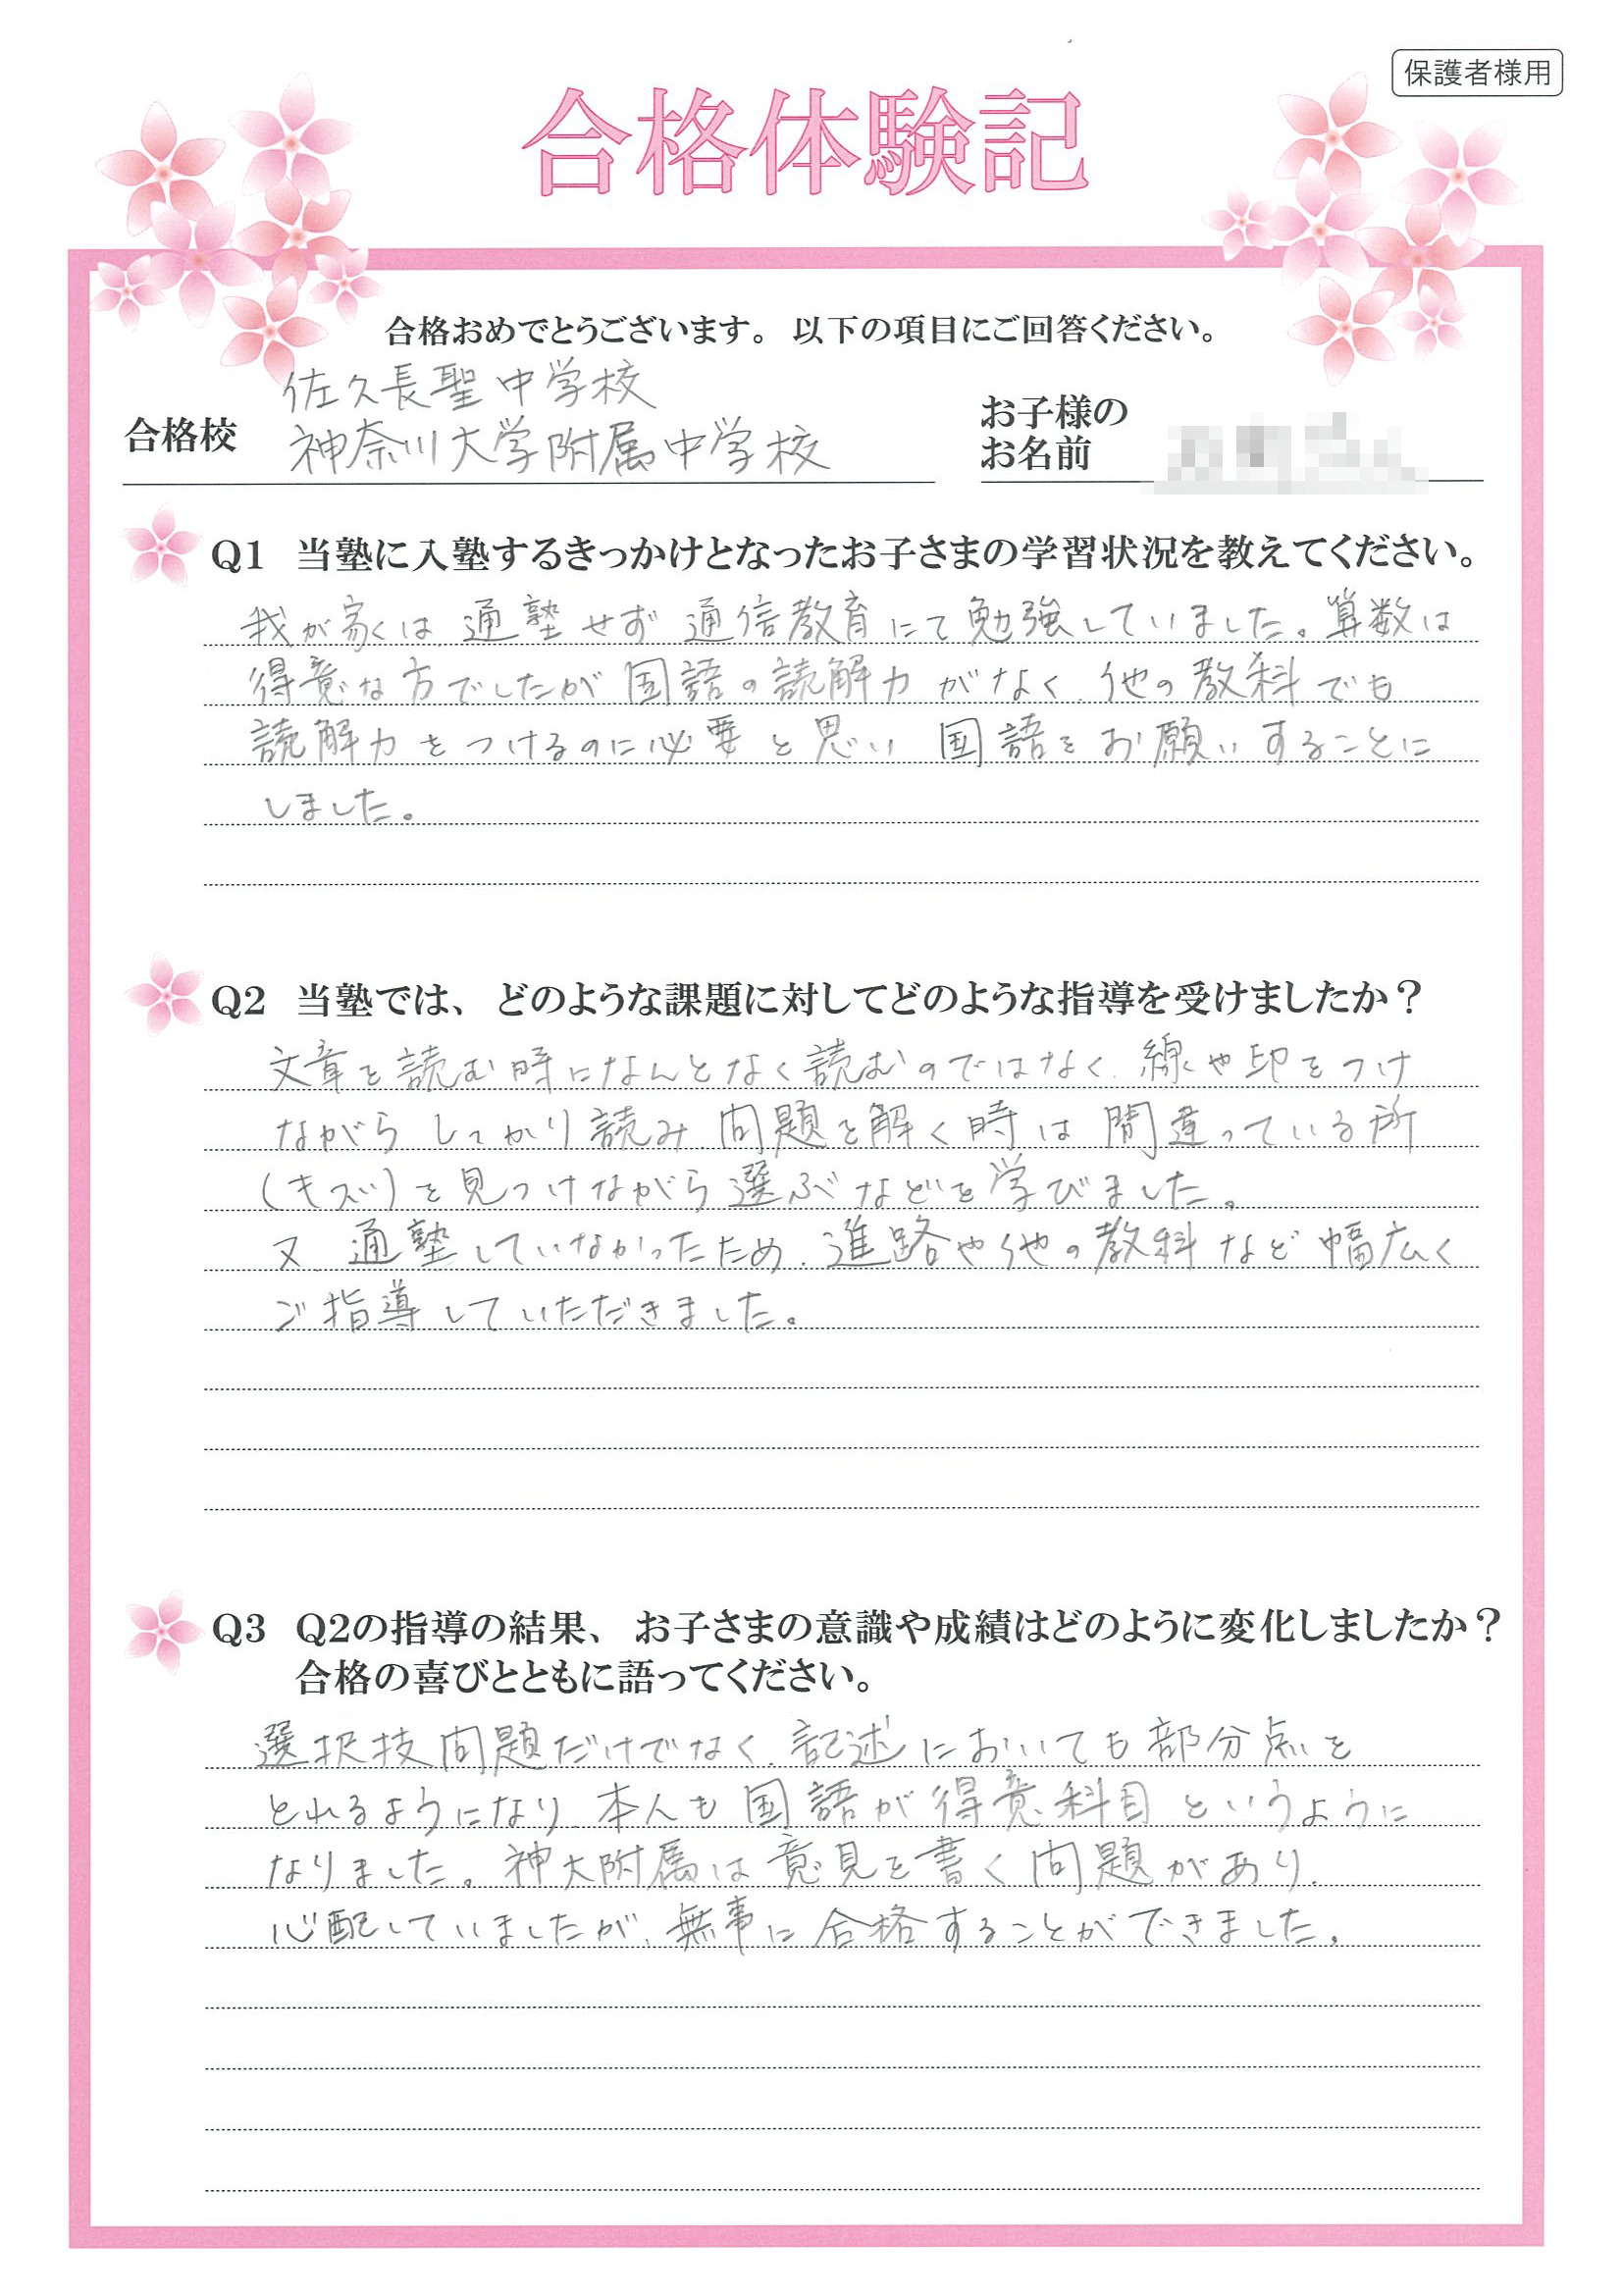 保護者様用
合格体験記
合格おめでとうございます。 以下の項目にご回答ください。
合格校
佐久長聖中学校
神奈川大学附属中学校
お子様の
お名前
Q1 当塾に入塾するきっかけとなったお子さまの学習状況を教えてください。
我が家は、通塾せず通信教育にて勉強していました。算数は
得意な方でしたが国語の読解力がなく、他の教科でも
読解力をつけるのに必要と思い国語をお願いすることに
しました。
Q2 当塾では、どのような課題に対してどのような指導を受けましたか？
文章を読む時になんとなく読むのではなく、線や印をつけ
ながらしっかり読み、問題を解く時は間違っている所
(キズ)を見つけながら選ぶなどを学びました。
又、通塾していなかったため、進路や他の教科など幅広く
ご指導していただきました。
Q3 Q2の指導の結果、お子さまの意識や成績はどのように変化しましたか？
合格の喜びとともに語ってください。
選択技問題だけでなく、記述においても部分点を
とれるようになり、本人も国語が得意科目というように
なりました。神大附属は意見を書く問題があり、
心配していましたが、無事に合格することができました。